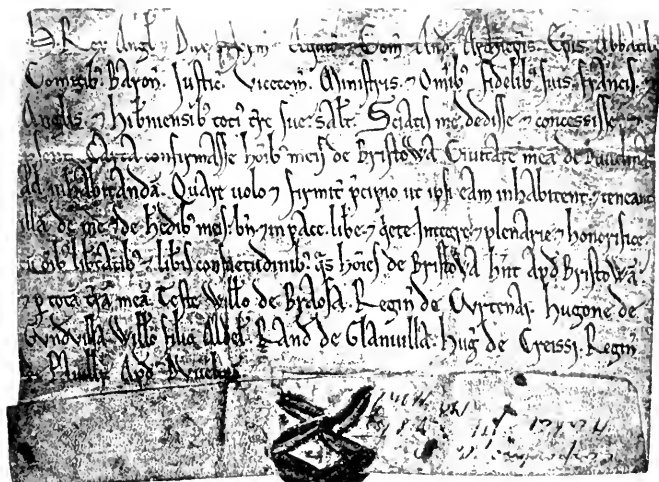 H. Rex Angł ⁊ Dux Norm̄ ⁊ Aquit̄ ⁊ Com̄ And̄. Archiep̄is. Ep̄is. Abb̄atib;
Comitib;. Baron̄. Justic̄. Vicecom̄. Ministris. ⁊ Om̄ib; fidelib; suis. francis. ⁊
Anglis. ⁊ Hib̄niensib; toti' t̄re sue: Sal̄t. Sciatis me dedisse. ⁊ concessisse. ⁊
p̄senti Carta confirmasse hōib; meis de Bristowa. Ciuitatē meā de Duuelina
Ad inhabitandā. Quare uolo ⁊ firmit̄ p̄cipio ut ip̄i eam inhabitent. ⁊ teneant
illā de me ⁊ de h̄edib; meis: bn̄ ⁊ in pace. lib̄e ⁊ q̄ete. Integre ⁊ plenarie ⁊ honorifice.
cū om̄ib; lib̄tatib; ⁊ lib̄is consuetudinib;. q̄s hōies de Bristowa hn̄t Ap̄d Bristowā.
⁊ p̄ totā t̄rā meā. Teste. Will̄o de Braosa. Regin̄ de Curtenai. Hugone de
Gundeuilla. Will̄o filio Aldel̄. Rand̄ de Glanuilla. Huḡ de Creissi. Regin̄
Ap̄d Duuelinā